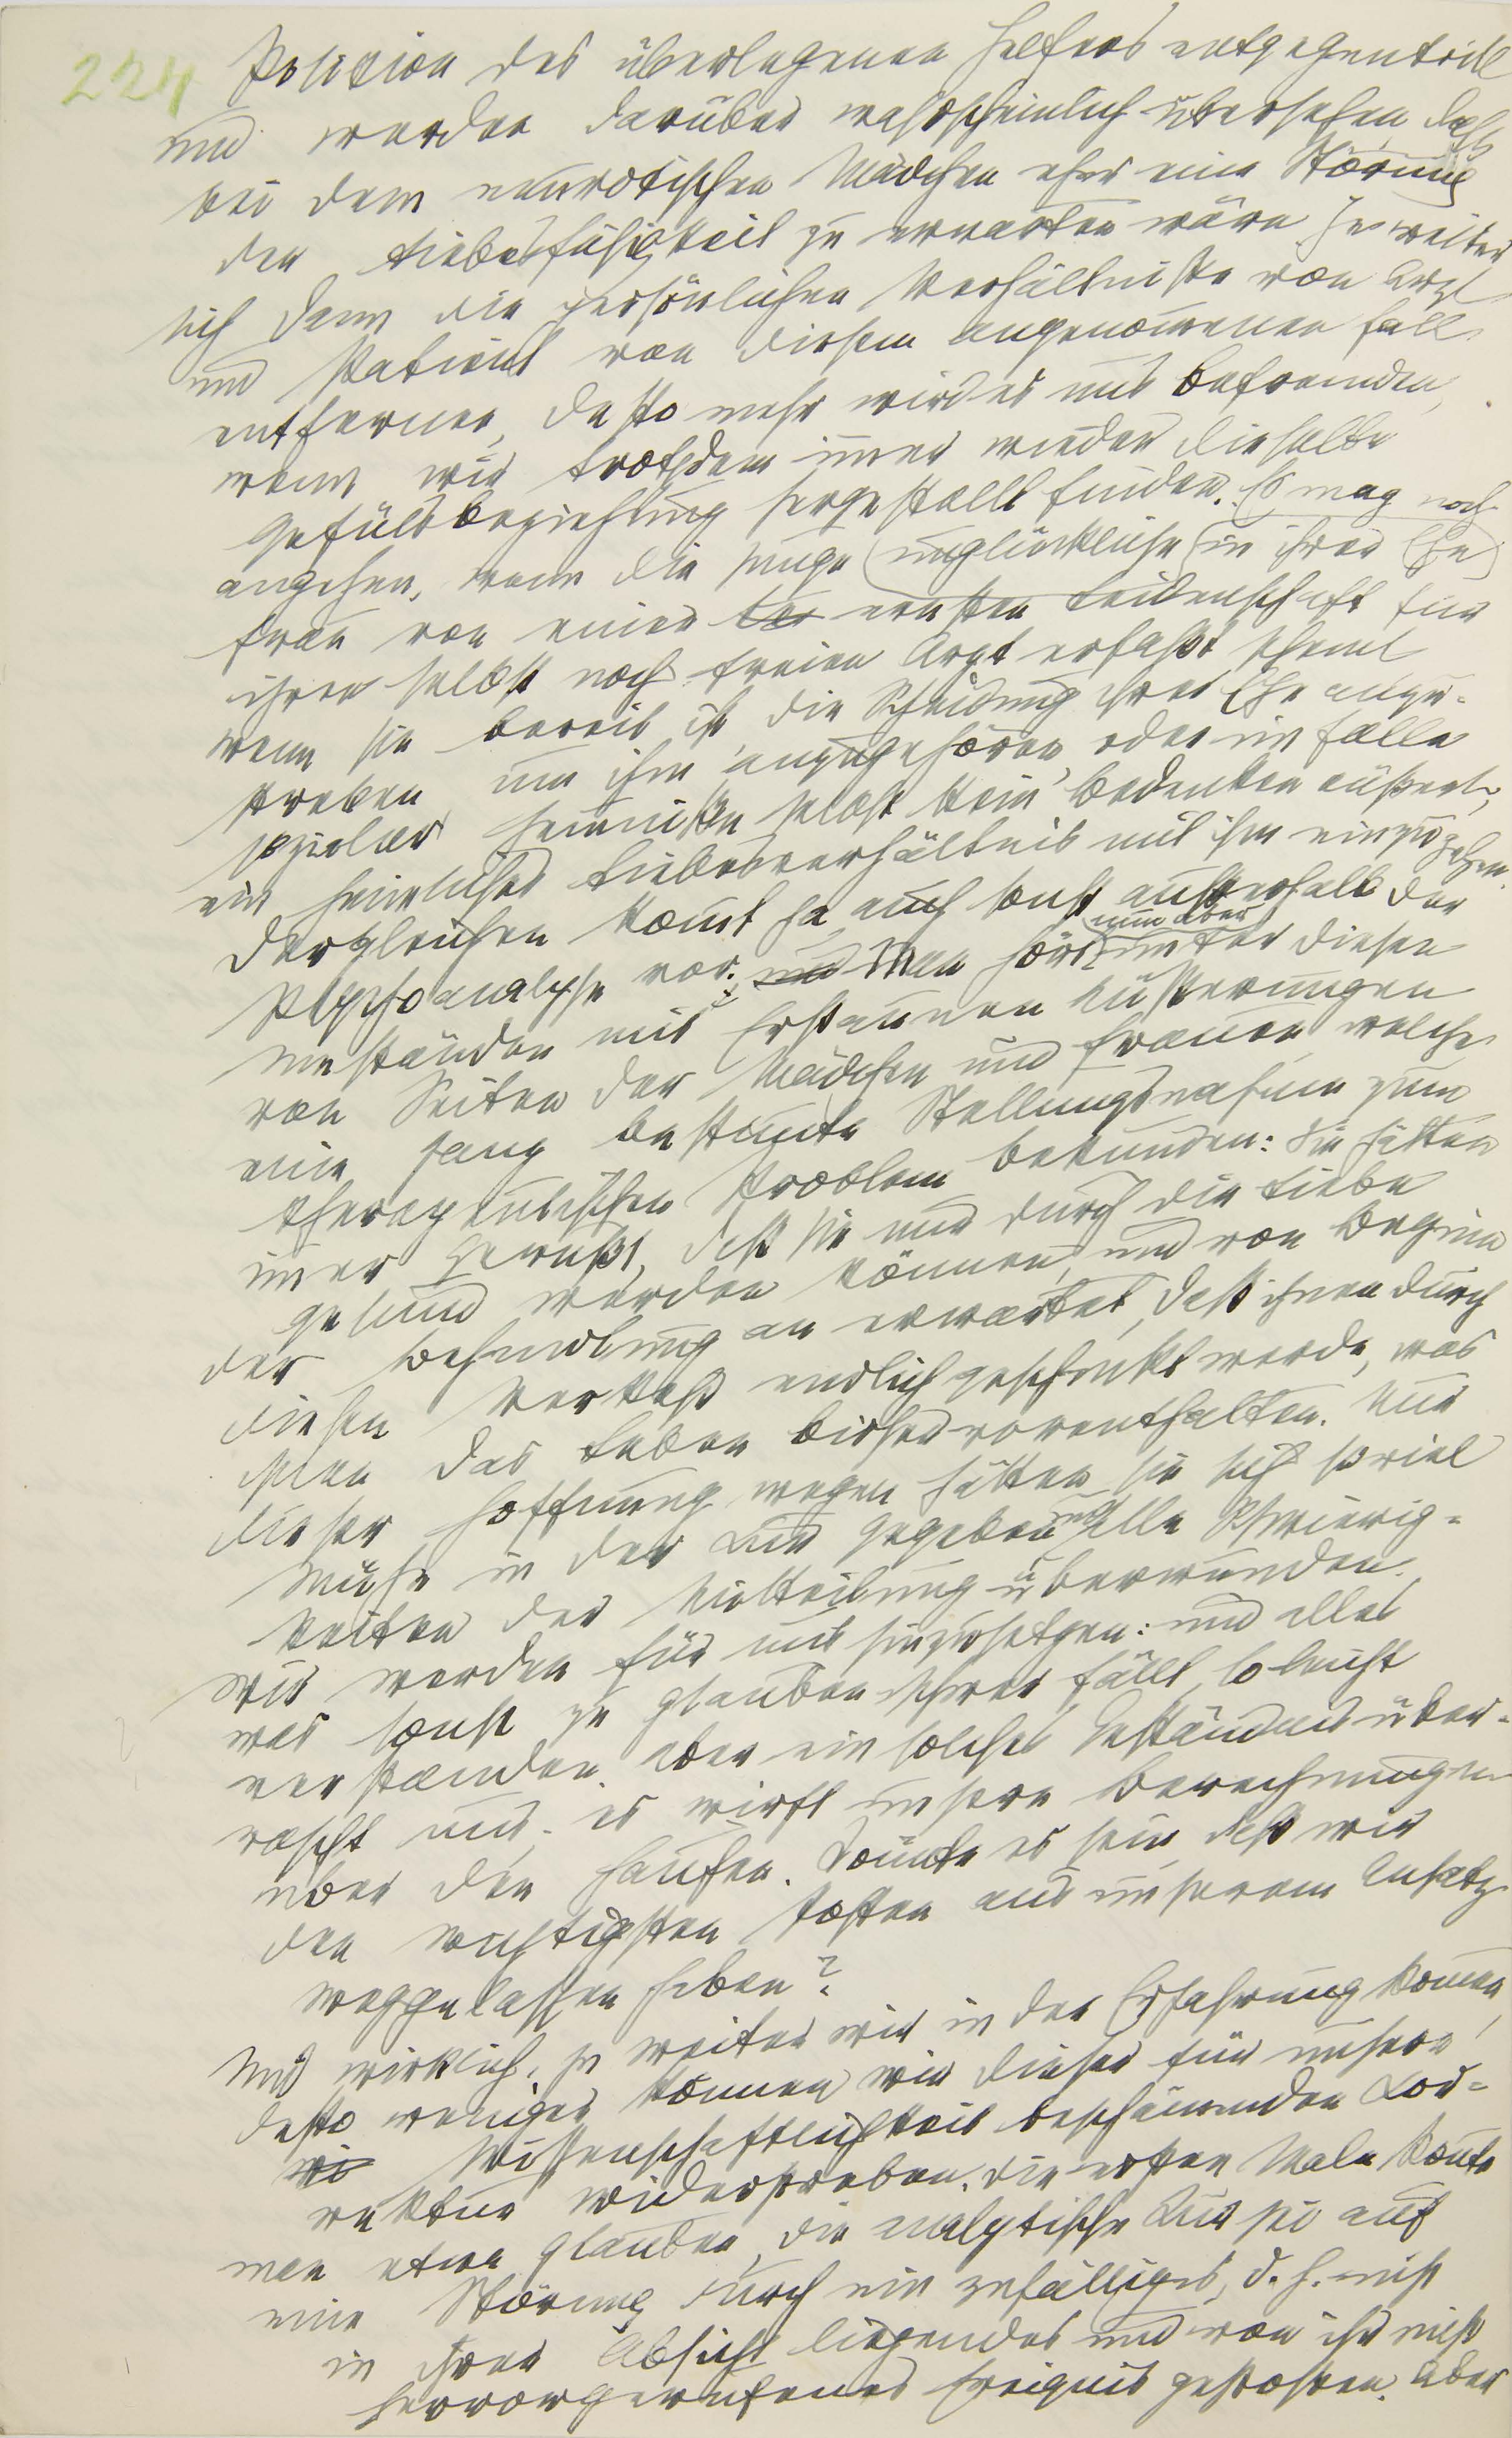 224 Position des überlegenen Helfers entgegentritt
und werden darüber wahrscheinlich übersehen, daß
bei dem neurotischen Mädchen eher eine Störung
der Liebesfähigkeit zu erwarten wäre. Je weiter
sich dann die persönlichen Verhältniße von Arzt
und Patient von diesem angenommenen Fall
entfernen, desto mehr wird es uns befremden,
wenn wir trotzdem immer wieder dieselbe
Gefülsbeziehung hergestellt finden. Es mag noch
angehen, wenn die junge (unglückliche) in ihrer Ehe
Frau von einer ernsten Leidenschaft für
ihren selbst noch freien Arzt erfaßt scheint
wenn sie bereit ist die Scheidung ihrer Ehe anzu-
streben um ihm anzugehören, oder im Falle
sozialer Hemmniße selbst kein Bedenken äußert,
ein heimliches Liebesverhältnis mit ihm einzugehen.
Dergleichen kommt ja auch sonst außerhalb der
Psychoanalyse vor; und Man hört nun aber unter diesen
Umständen mit Erstaunen Äußerungen
von Seiten der Mädchen und Frauen, welche
eine ganz bestimmte Stellungsnahme zum
therapeutischen Problem bekunden: Sie hätten
immer gewußt, daß sie nur durch die Liebe
gesund werden können, und von Beginn
der Behandlung an erwartet, daß ihnen durch
diesen Verkehr endlich geschenkt werde, was
ihnen das Leben bisher vorenthalten. Nur
dieser Hoffnung wegen hätten sie sich soviel
Mühe in der Kur gegeben und alle Schwierig-
keiten der Mitteilung überwunden.
Wir werden für uns hinzusetzen: und alles
was sonst zu glauben schwer fällt, so leicht
verstanden. Aber ein solches Geständnis über-
rascht uns. es wirft unsere Berechnungen
über den Haufen. Könnte es sein, daß wir
den wichtigsten Posten aus unserem Ansatz
weggelassen haben?
Und wirklich, je weiter wir in der Erfahrung kommen,
desto weniger können wir dieser für unsere
wi Wissenschaftlichkeit beschämenden Kor-
rektur widerstreben. Die ersten Male konnte
man etwa glauben, die analytische Kur sei auf
eine Störung durch ein zufälliges, d. h. nicht
in ihrer Absicht liegendes und von ihr nicht
hervorgerufenes Ereignis gestoßen. Aber